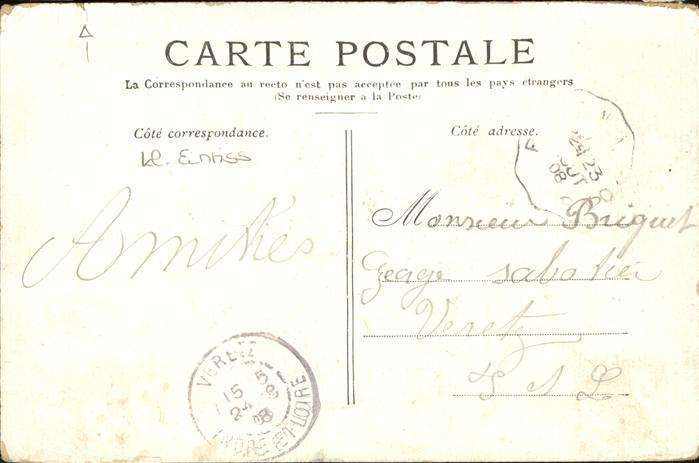 CARTE POSTALE
La Correspondance au recto n'est pas acceptée par tous les pays étrangers
(Se renseigner à la Poste)
Côté correspondance.
Côté adresse.
Amitiés
Monsieur Briquet
George sabotier
Veretz
I et L
23
OUT
08
VERETZ
15
24 8
08
INDRE-ET-LOIRE